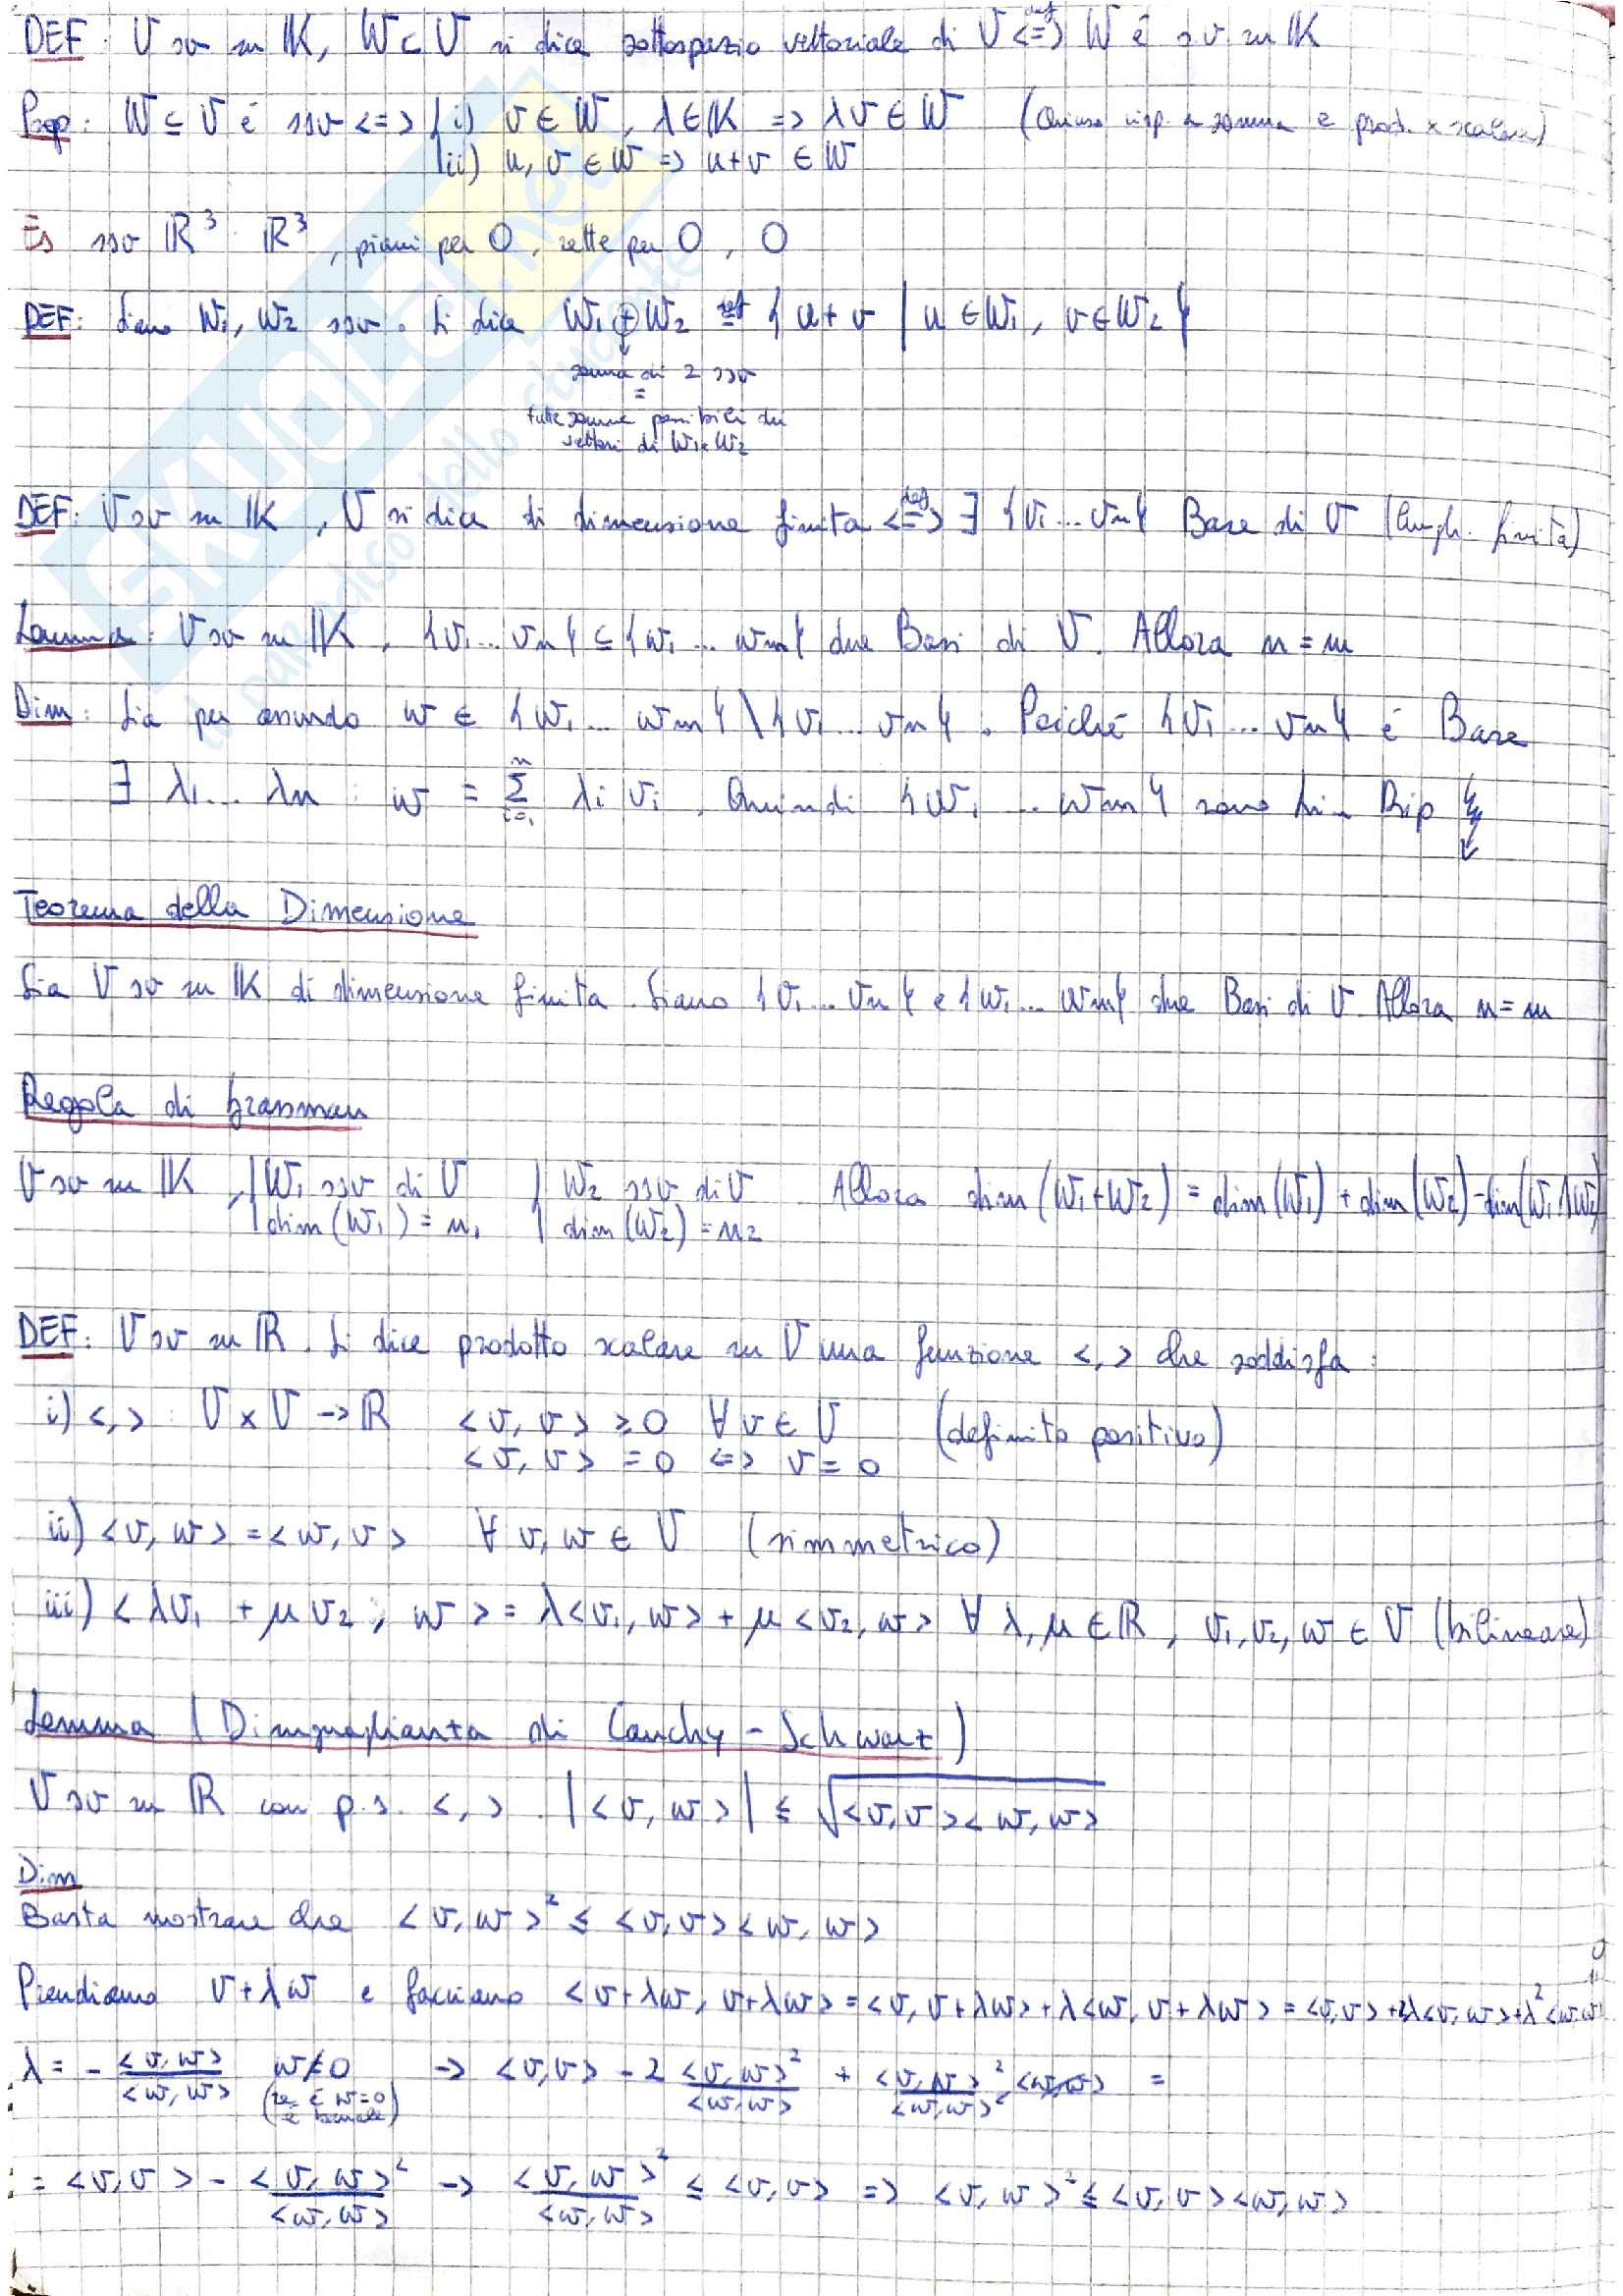 DEF: V sv su K, W ⊂ V si dice sottospazio vettoriale di V <=>def W è s.v. su K
Prop: W ⊆ V é ssv <=> { i) v ∈ W, λ ∈ K => λv ∈ W (chiuso risp. a somma e prod. x scalare)
ii) u, v ∈ W => u+v ∈ W
Es ssv R³: R³, piani per O, rette per O, O
DEF: Siano W₁, W₂ ssv. Si dice W₁ + W₂ =def { u+v | u ∈ W₁, v ∈ W₂ }
somma di 2 ssv
=
tutte somme possibili dei
vettori di W₁ e W₂
DEF: V sv su K, V si dice di dimensione finita <=>def ∃ {v₁...vn} Base di V (lungh. finita)
Lemma: V sv su K, {v₁...vn} ⊆ {w₁...wm} due Basi di V. Allora n = m
Dim: Sia per assurdo w ∈ {w₁...wm} \ {v₁...vn}. Poiché {v₁...vn} é Base
∃ λ₁...λn : w = Σ_{i=1}^{n} λi vi. Quindi {w₁...wm} sono lin Dip
Teorema della Dimensione
Sia V sv su K di dimensione finita. Siano {v₁...vn} e {w₁...wm} due Basi di V. Allora n = m
Regola di Grasman
V sv su K, | W₁ ssv di V | W₂ ssv di V Allora dim(W₁+W₂) = dim(W₁) + dim(W₂) - dim(W₁∩W₂)
| dim(W₁) = n₁ | dim(W₂) = n₂
DEF: V sv su R. Si dice prodotto scalare su V una funzione <,> che soddisfa:
i) <,> : V x V -> R <v, v> ≥ 0 ∀ v ∈ V (definito positivo)
<v, v> = 0 <=> v = 0
ii) <v, w> = <w, v> ∀ v, w ∈ V (simmetrico)
iii) <λv₁ + μv₂, w> = λ<v₁, w> + μ<v₂, w> ∀ λ, μ ∈ R, v₁, v₂, w ∈ V (bilineare)
Lemma (Disuguaglianza di Cauchy-Schwarz)
V sv su R con p.s. <,>. |<v, w>| ≤ √<v, v><w, w>
Dim
Basta mostrare che <v, w>² ≤ <v, v><w, w>
Prendiamo v+λw e facciamo <v+λw, v+λw> = <v, v+λw> + λ<w, v+λw> = <v,v> + 2λ<v, w> + λ²<w,w>
λ = - <v, w>/<w, w> w≠0 -> <v,v> - 2 <v, w>²/<w, w> + <v, w>²/<w, w>² <w,w> =
(se w=0
è banale)
= <v, v> - <v, w>²/<w, w> -> <v, w>²/<w, w> ≤ <v, v> => <v, w>² ≤ <v, v><w, w>